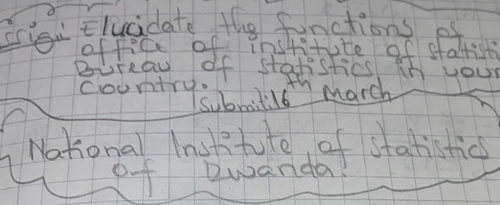 Elucidate the functions of
office of institute of statisti
Bureau of statistics in your
country.
Submit: 16th March
National Institute of statistics
of Dwanda.